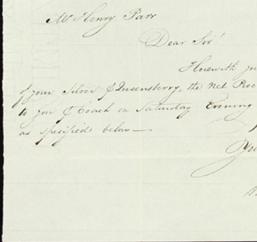 Mr Henry Parr
Dear Sir
Herewith
of your Silver & Queensberry, the Net
to you & Coach on Saturday Evening
as specified below —